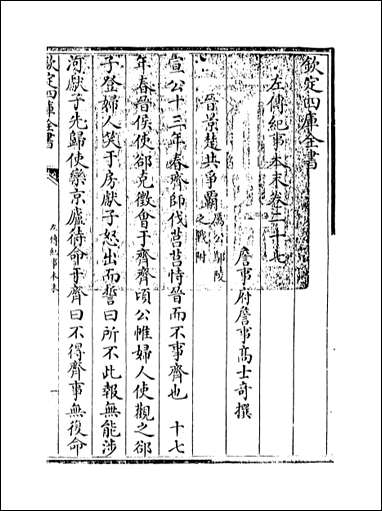 欽定四庫全書
左傳紀事本末卷二十七
詹事府詹事高士奇撰
晉景楚共爭霸厲公鄢陵之戰附
宣公十三年春齊師伐莒莒恃晉而不事齊也 十七
年春晉侯使郤克徵會于齊齊頃公帷婦人使觀之郤
子登婦人笑于房獻子怒出而誓曰所不此報無能涉
河獻子先歸使欒京廬待命于齊曰不得齊事無復命
欽定四庫全書
左傳紀事本末
一